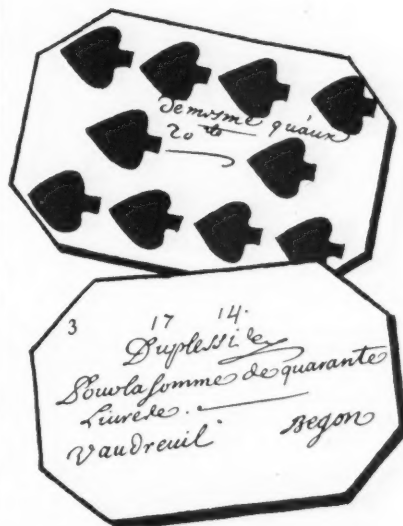 de mesme quaux
20 lt
3 17 14.
Duplessis
Pour la somme de quarante
Livrede.
Vaudreuil Begon